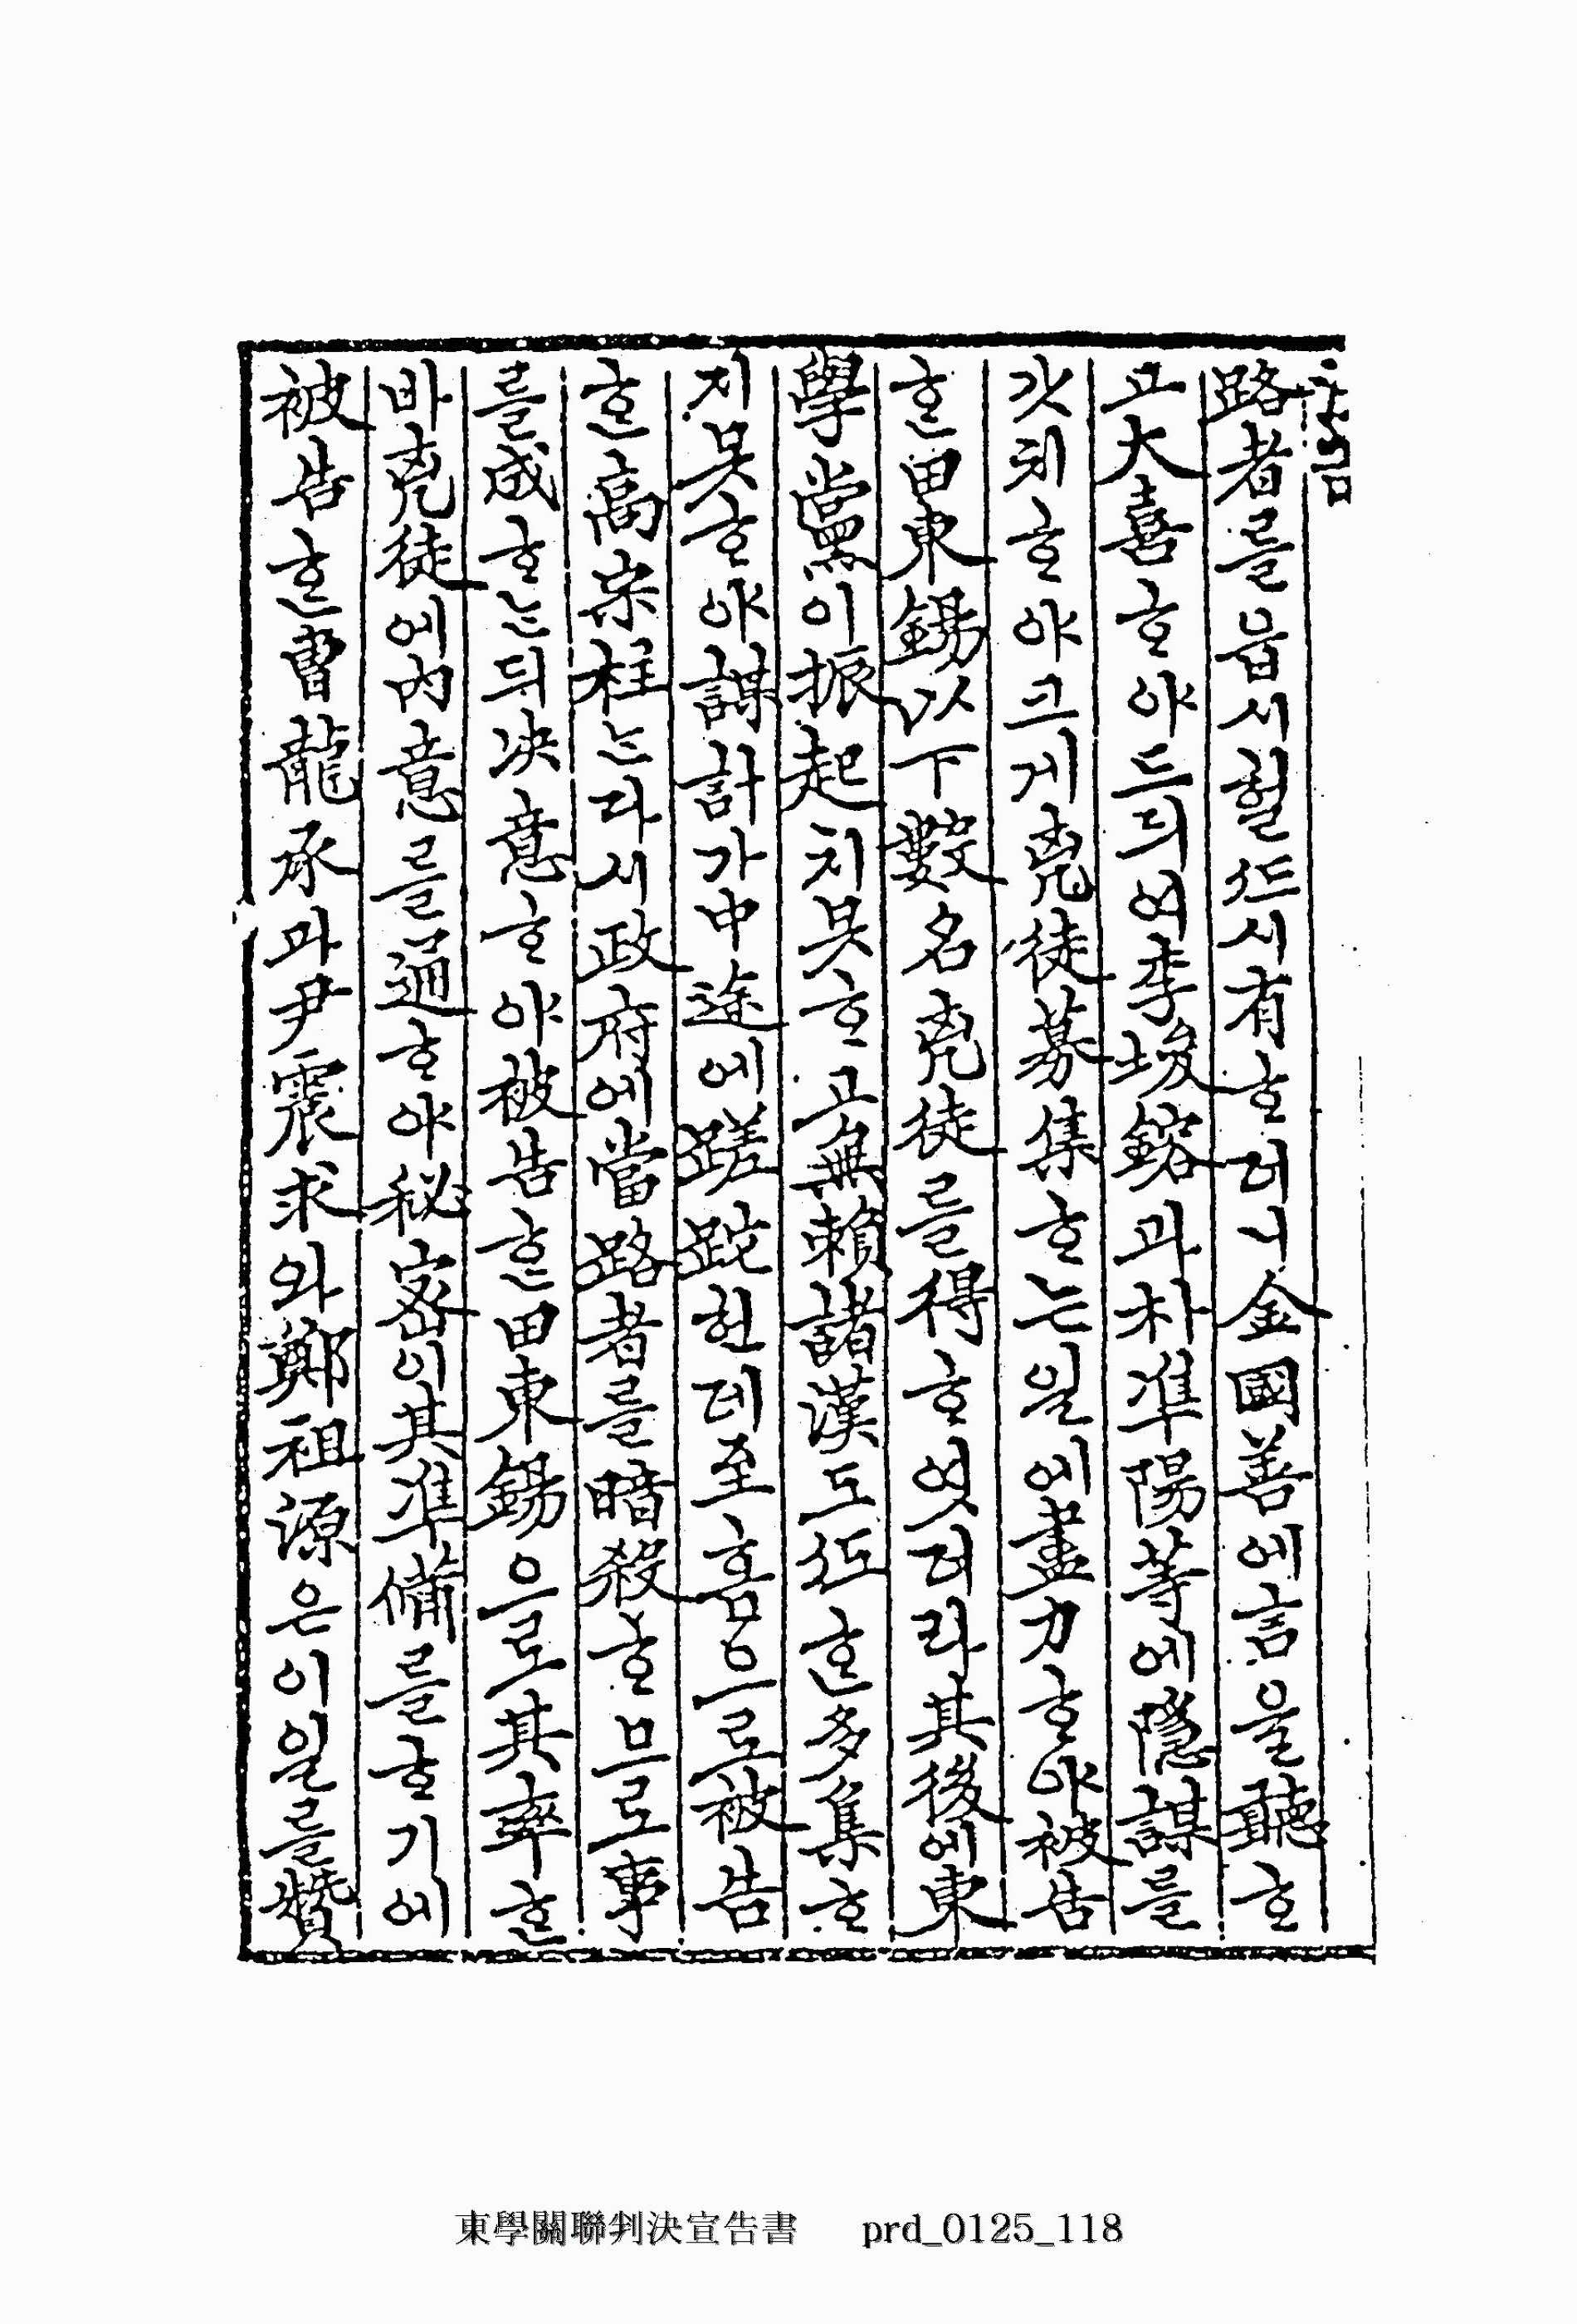 路者를읍시헐ᄯᅳ시有ᄒᆞ더니金國善에言을聽ᄒᆞ
고大喜ᄒᆞ야드듸여李埈鎔과朴準陽等에隱謀를
갓치ᄒᆞ야크게兇徒募集ᄒᆞ는일에盡力ᄒᆞ야被告
ᄒᆞᆫ田東錫以下數名兇徒를得ᄒᆞ엿더라其後에東
學黨이振起치못ᄒᆞ고無賴諸漢도ᄯᅩᄒᆞᆫ多集ᄒᆞ
지못ᄒᆞ야謀計가中途에蹉跎헌데至ᄒᆞᆷ으로被告
ᄒᆞᆫ高宗柱ᄂᆞᆫ다시政府에當路者를暗殺ᄒᆞ므로事
를成ᄒᆞᄂᆞᆫ듸决意ᄒᆞ야被告ᄒᆞᆫ田東錫으로其率ᄒᆞᆫ
바兇徒에內意를通ᄒᆞ야秘密이其準備를ᄒᆞ기에
被告ᄒᆞᆫ曺龍承과尹震求와鄭祖源은이일를贊
東學關聯判決宣告書 prd_0125_118